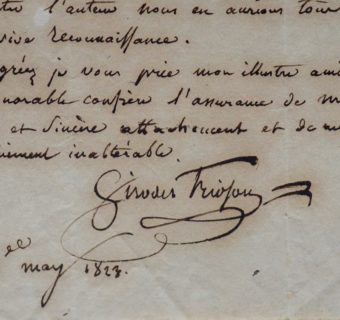 tre l'auteur nous en aurions tou
vive reconnaissance.
gréez je vous prie mon illustre ami
norable confrère l'assurance de m
et sincère attachement et de m
inaltérable.
Girodet Trioson
may 1823.